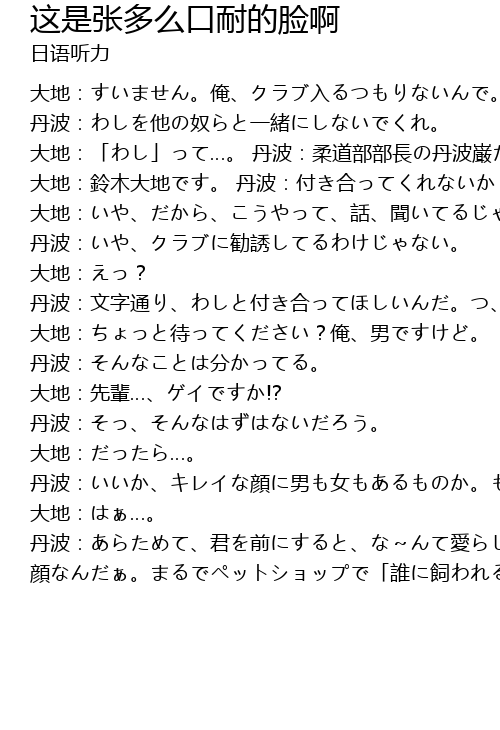 这是张多么口耐的脸啊
日语听力
大地：すいません。俺、クラブ入るつもりないんで。
丹波：わしを他の奴らと一緒にしないでくれ。
大地：「わし」って…。 丹波：柔道部部長の丹波巌だ
大地：鈴木大地です。 丹波：付き合ってくれないか
大地：いや、だから、こうやって、話、聞いてるじゃ
丹波：いや、クラブに勧誘してるわけじゃない。
大地：えっ？
丹波：文字通り、わしと付き合ってほしいんだ。つ、
大地：ちょっと待ってください？俺、男ですけど。
丹波：そんなことは分かってる。
大地：先輩…、ゲイですか!?
丹波：そっ、そんなはずはないだろう。
大地：だったら…。
丹波：いいか、キレイな顔に男も女もあるものか。も
大地：はぁ…。
丹波：あらためて、君を前にすると、な～んて愛らし
顔なんだぁ。まるでペットショップで「誰に飼われる